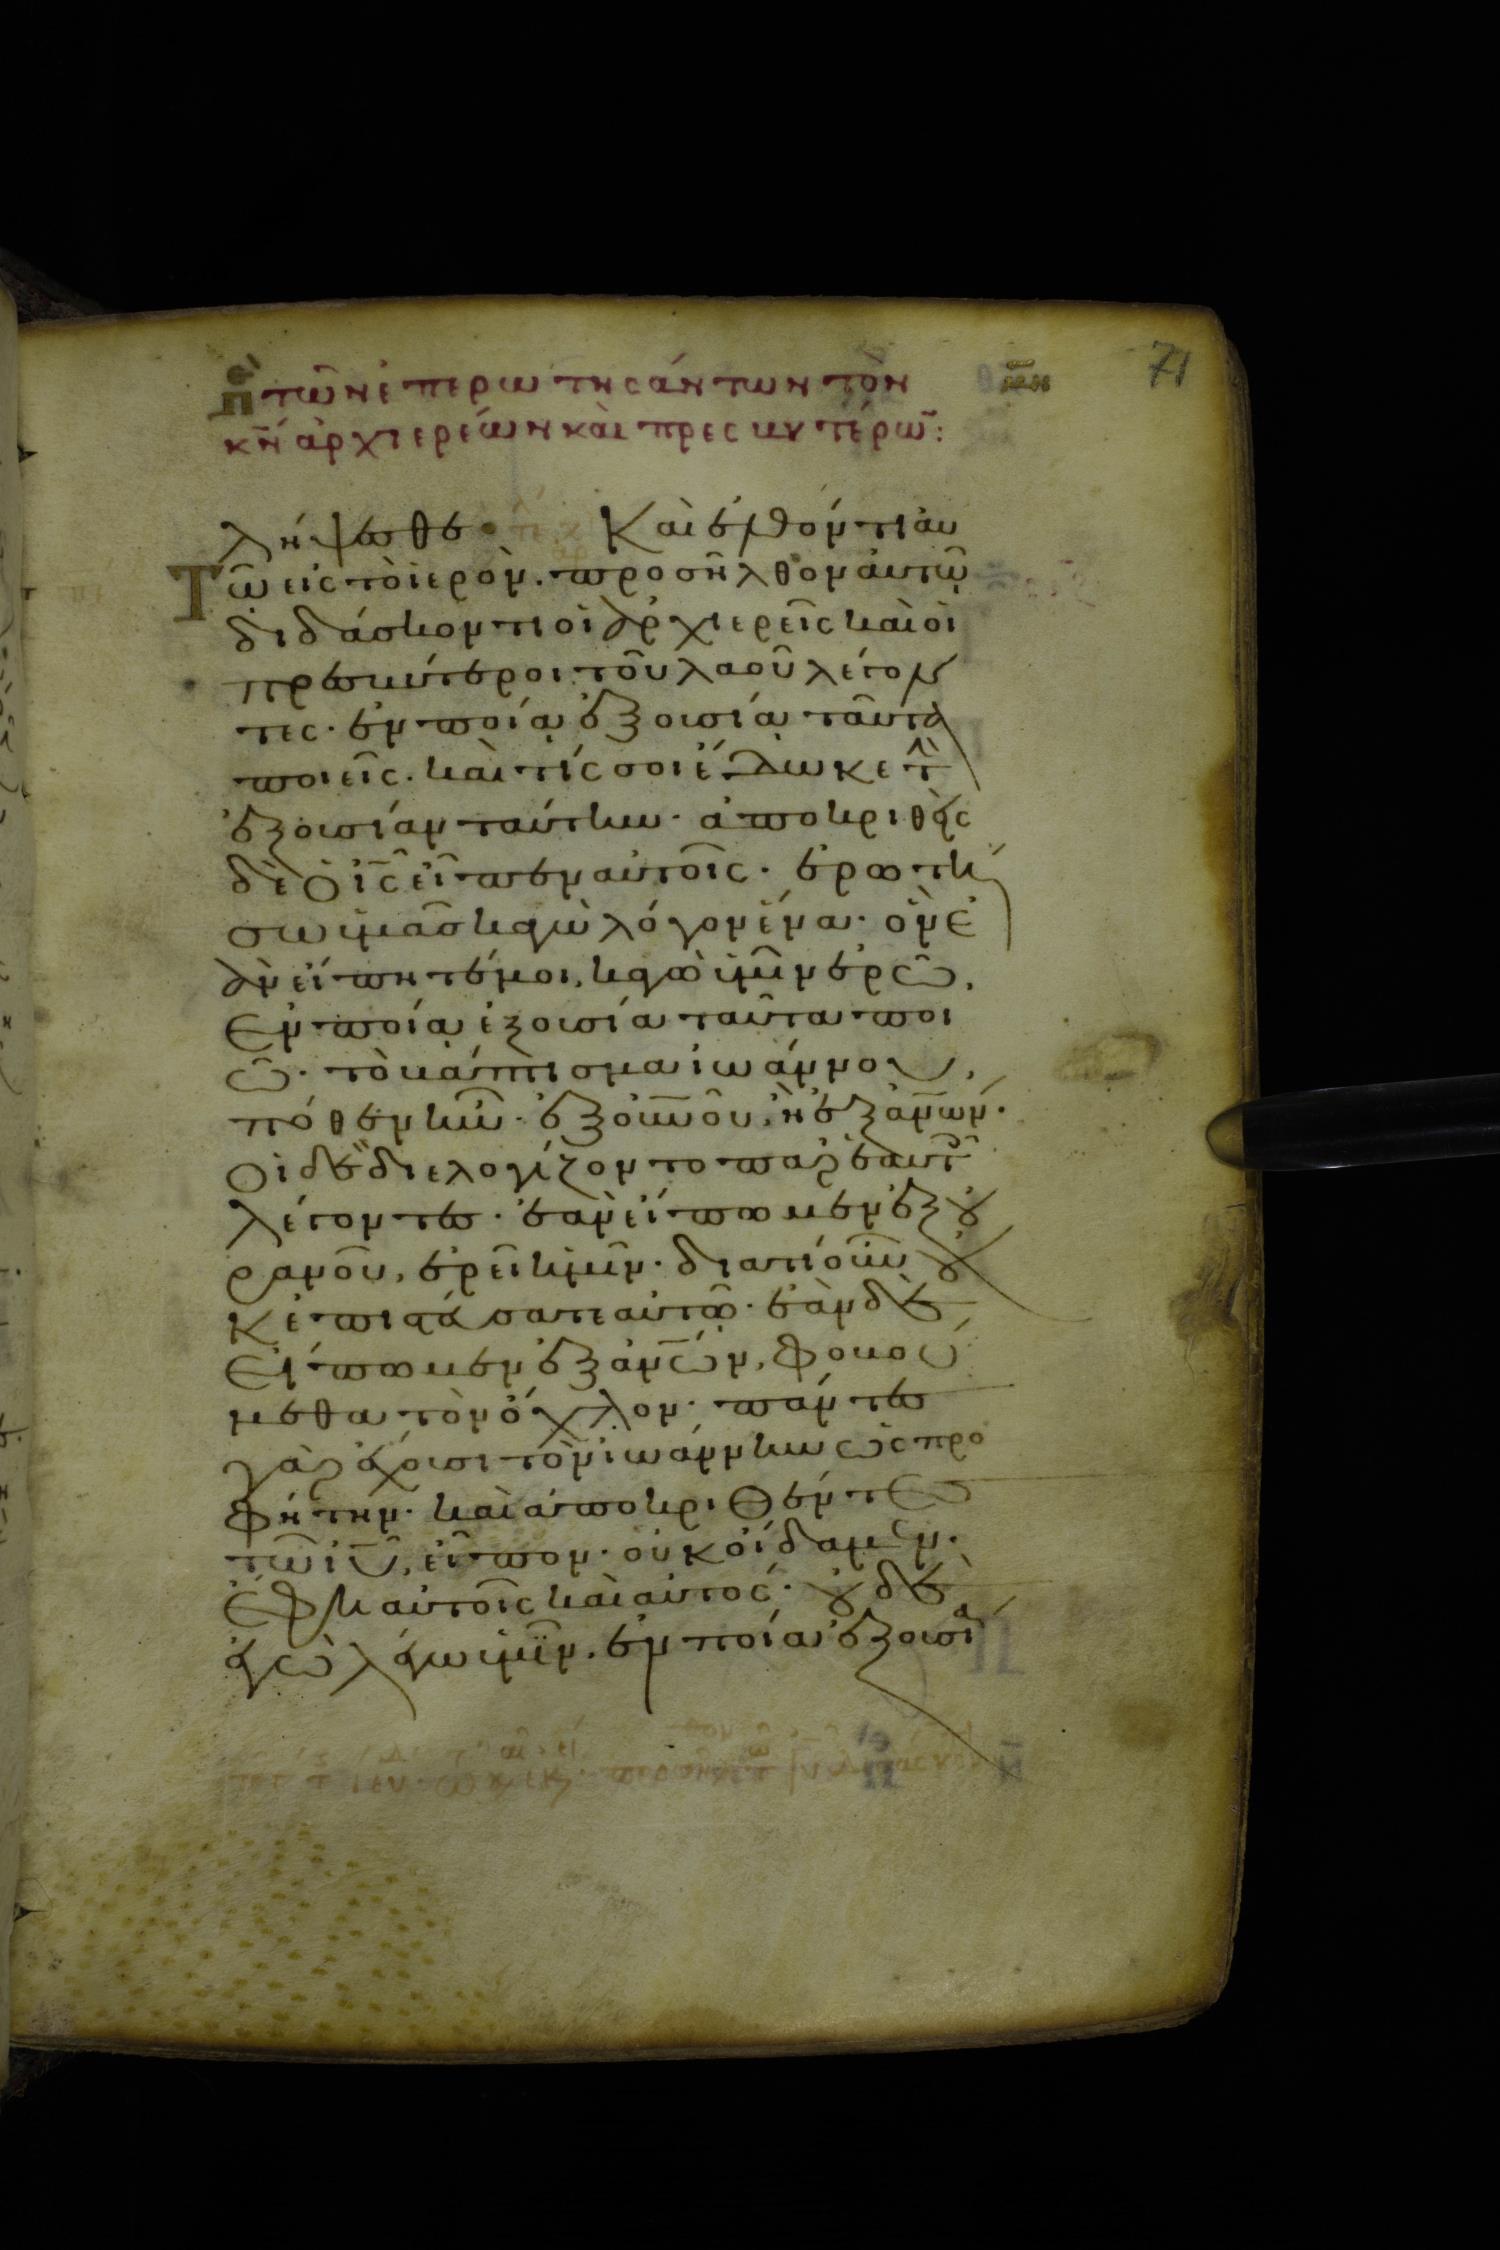 περὶ τῶν ἐπερωτησάντων τὸν μη 71
κν ἀρχιερέων καὶ πρεσβυτέρω:
λήψεσθε. Καὶ ἐλθόντι αυ
τῶ εἰς τὸ ἱερὸν. προσῆλθον αὐτῶ
διδάσκοντι οἱ ἀρχιερεῖς καὶ οἱ
πρεσβύτεροι τοῦ λαοῦ λέγον
τες. ἐν ποία ἐξουσία ταῦτα
ποιεῖς. καὶ τίς σοι ἔδωκε τὴν
ἐξουσίαν ταύτην. ἀποκριθεὶς
δὲ ὁ ις εἶπεν αὐτοῖς. ἐρωτή
σω ὑμᾶς κἀγὼ λόγον ἕνα. ὃν ἐ
ὰν εἴπητέ μοι, κἀγὼ ὑμῖν ἐρῶ,
Ἐν ποία ἐξουσία ταῦτα ποι
ῶ. τὸ βάπτισμα ἰωάννου,
πόθεν ἦν. ἐξ οὐνοῦ, ἢ ἐξ ανων.
Οἱ δὲ διελογίζοντο παρ ἑαυτοῖς
λέγοντες. ἐὰν εἴπωμεν ἐξ οὐ
ρανοῦ, ἐρεῖ ἡμῖν. διατί οὖν οὐ
κ ἐπιστεύσατε αὐτῶ. ἐὰν δὲ
Εἴπωμεν ἐξ ανων, φοβού
μεθα τὸν ὄχλον. πάντες
γὰρ ἔχουσι τὸν ἰωάννην ὡς προ
φήτην. καὶ ἀποκριθέντες
τῶ ιυ, εἶπον. οὐκ οἴδαμεν.
Ἔφη αὐτοῖς καὶ αὐτός. οὐδὲ
ἐγὼ λέγω ὑμῖν. ἐν ποία ἐξουσία